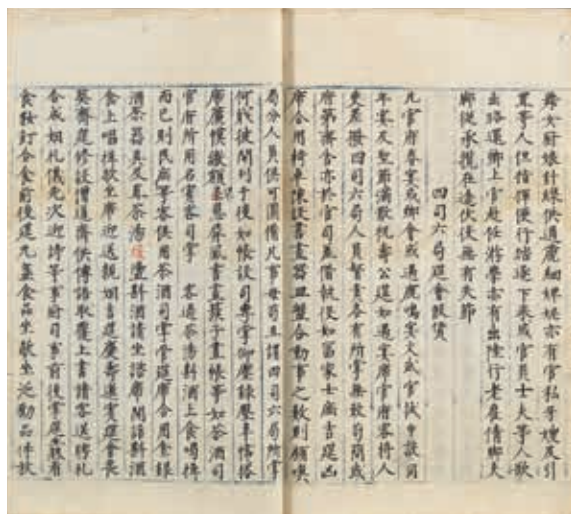 舞女廚娘針線供過麄細婢妮亦有官私牙嫂及引
置等人但指揮便行踏逐下來或官員士夫等人欲
出路還鄉上官赴任游學亦有出陸行老雇倩脚夫
脚從承攬在途伏役無有失節
四司六局筵會假賃
凡官府春宴或鄉會或遇鹿鳴宴文武官試中設同
年宴及聖節滿散祝壽公筵如遇宴席官府客將人
吏差撥四司六局人員督責各有所掌無致苟簡或
府第齋舍亦於官司差借執役如富家士庶吉筵凶
席合用椅卓陳設書畫器皿盤合動事之類則顧喚
局分人員俱可圓備凡事毋苟且謂四司六局所掌
何職役開列于後如帳設司專掌仰塵錄壓卓幃搭
席簾幙繳額罘罳屏風書畫簇子畫帳等如茶酒司
官府所用名賓客司掌 客過茶湯斟酒上食喝揖
而已則民庶等客俱用茶酒司掌管筵席合用金銀
酒茶器具及煎茶湯煖盪斟酒請坐諮席開話斟酒
食上喝揖歇坐席迎送親姻吉筵慶壽邀賓筵會喪
葬齋筵修設僧道齋供傳語取覆上書請客送聘礼
合成姻礼儀先次迎請等事廚司事前後掌筵生熟看
食䬦飣合食前後筵九盞食品坐歇坐泛勸品件放